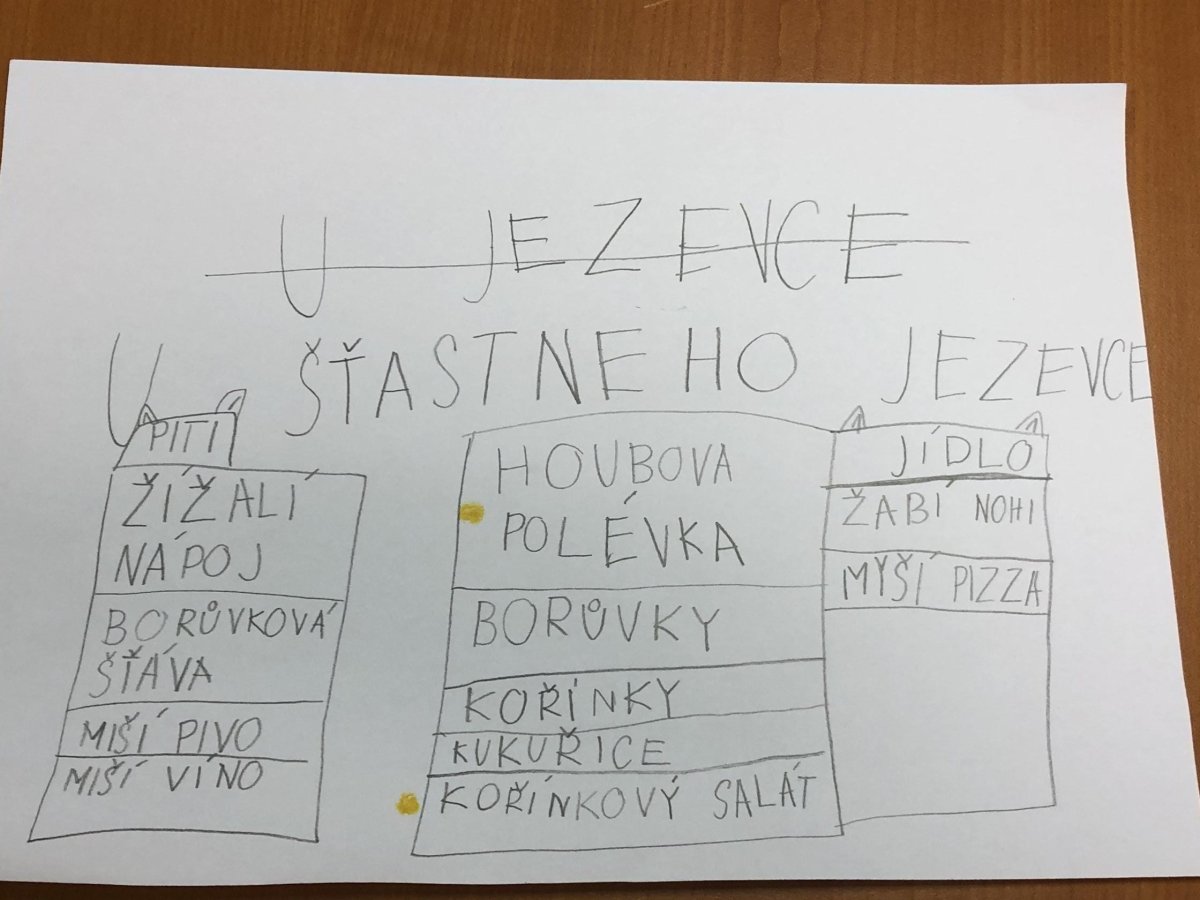 U JEZEVCE
U ŠŤASTNEHO JEZEVCE
PITI
ŽÍŽALÍ
NÁPOJ
BORŮVKOVÁ
ŠŤÁVA
MIŠÍ PIVO
MIŠÍ VÍNO
HOUBOVA
POLÉVKA
BORŮVKY
KOŘÍNKY
KUKUŘICE
KOŘÍNKOVÝ SALÁT
JÍDLO
ŽABÍ NOHI
MYŠÍ PIZZA